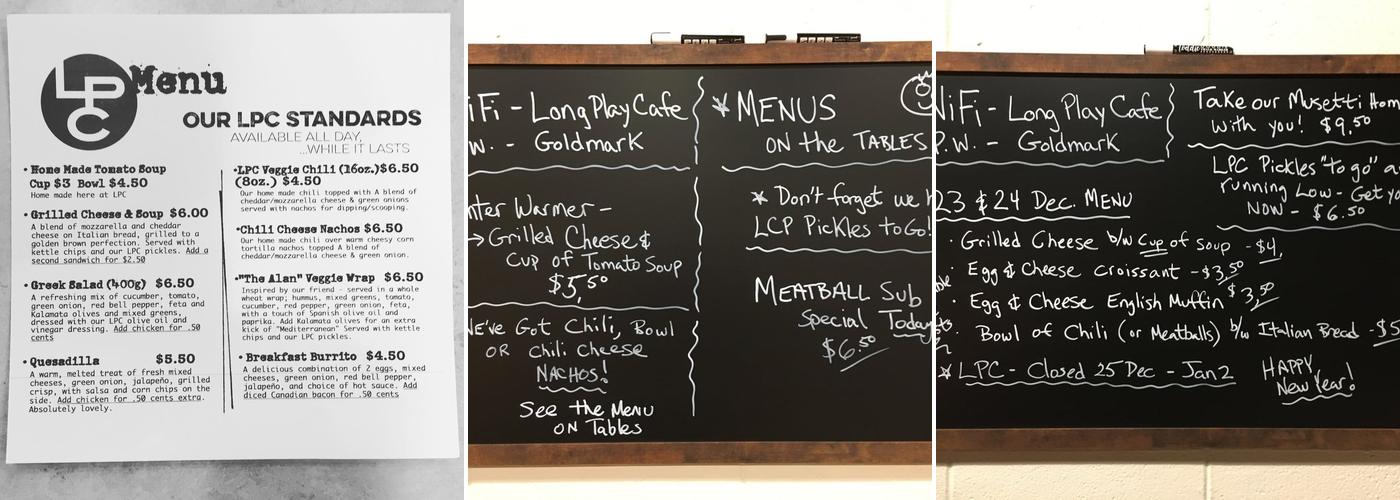 LPC
Menu
OUR LPC STANDARDS
AVAILABLE ALL DAY,
...WHILE IT LASTS
• Home Made Tomato Soup
Cup $3 Bowl $4.50
Home made here at LPC
• Grilled Cheese & Soup $6.00
A blend of mozzarella and cheddar
cheese on Italian bread, grilled to a
golden brown perfection. Served with
kettle chips and our LPC pickles. Add a
second sandwich for $2.50
• Greek Salad (400g) $6.50
A refreshing mix of cucumber, tomato,
green onion, red bell pepper, feta and
Kalamata olives and mixed greens,
dressed with our LPC olive oil and
vinegar dressing. Add chicken for .50
cents
• Quesadilla $5.50
A warm, melted treat of fresh mixed
cheeses, green onion, jalapeño, grilled
crisp, with salsa and corn chips on the
side. Add chicken for .50 cents extra.
Absolutely lovely.
•LPC Veggie Chili (16oz.)$6.50
(8oz.) $4.50
Our home made chili topped with A blend of
cheddar/mozzarella cheese & green onions
served with nachos for dipping/scooping.
•Chili Cheese Nachos $6.50
Our home made chili over warm cheesy corn
tortilla nachos topped A blend of
cheddar/mozzarella cheese & green onion.
•"The Alan" Veggie Wrap $6.50
Inspired by our friend - served in a whole
wheat wrap; hummus, mixed greens, tomato,
cucumber, red pepper, green onion, feta,
with a touch of Spanish olive oil and
paprika. Add Kalamata olives for an extra
kick of "Mediterranean" Served with kettle
chips and our LPC pickles.
• Breakfast Burrito $4.50
A delicious combination of 2 eggs, mixed
cheeses, green onion, red bell pepper,
jalapeño, and choice of hot sauce. Add
diced Canadian bacon for .50 cents
iFi - Long Play Cafe
W. - Goldmark
nter Warmer -
→ Grilled Cheese &
Cup of Tomato Soup
$5,50
We've Got Chili, Bowl
OR Chili Cheese
NACHOS!
See the Menu
ON Tables
* MENUS
ON the TABLES
* Don't forget we h
LCP Pickles to Go!
MEATBALL Sub
Special Today
$6.50
WiFi - Long Play Cafe
P.W. - Goldmark
Take our Musetti Hom
with you! $9.50
LPC Pickles "to go" a
running Low - Get yo
NOW - $6.50
23 & 24 Dec. MENU
· Grilled Cheese b/w Cup of Soup - $4,
· Egg & Cheese Croissant - $3,50
· Egg & Cheese English Muffin $3,50
· Bowl of Chili (or Meatballs) b/w Italian Bread - $5
* LPC - Closed 25 Dec - Jan 2
HAPPY
New Year!